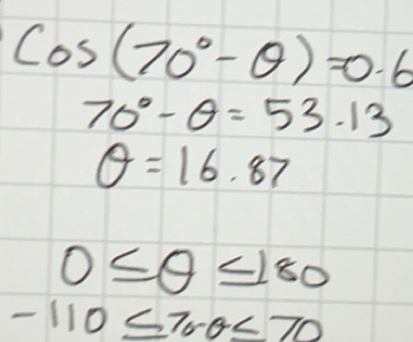 Cos(70° - θ) = 0.6
70° - θ = 53.13
θ = 16.87
0 ≤ θ ≤ 180
-110 ≤ 70-θ ≤ 70